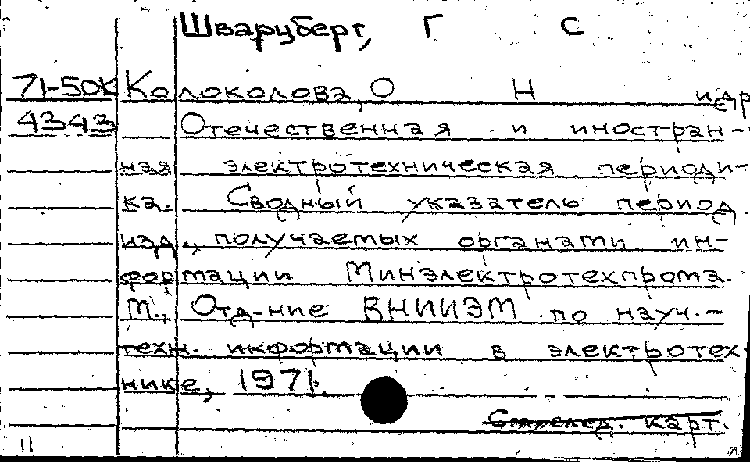 Шварцберг, Г С
71-50к Колоколова, О Н и др
4343 Отечественная и иностран-
ная электротехническая периоди-
ка. Сводный указатель период
изд., получаемых органами ин-
формации Минэлектротехпрома.
М., Отд-ние ВНИИЭМ по науч.-
техн. информации в электротех-
нике, 1971.
карт.
11